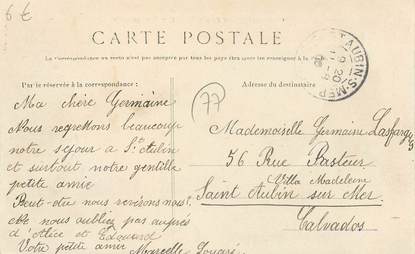 6 €
CARTE POSTALE
La correspondance au recto n'est pas acceptée par tous les pays étrangers (se renseigner à la
ST AUBIN-S-MER
Partie réservée à la correspondance :
Adresse du destinataire
77
Ma chère Germaine
Nous regrettons beaucoup
notre séjour à St Aubin
et surtout notre gentille
petite amie
Peut-être nous reviendrons nous !
Ne nous oubliez pas auprès
d'Alice et Edouard
Votre petite amie
Marcelle
Mademoiselle Germaine
56 Rue Pasteur
Villa Madeleine
Saint Aubin sur Mer
Calvados